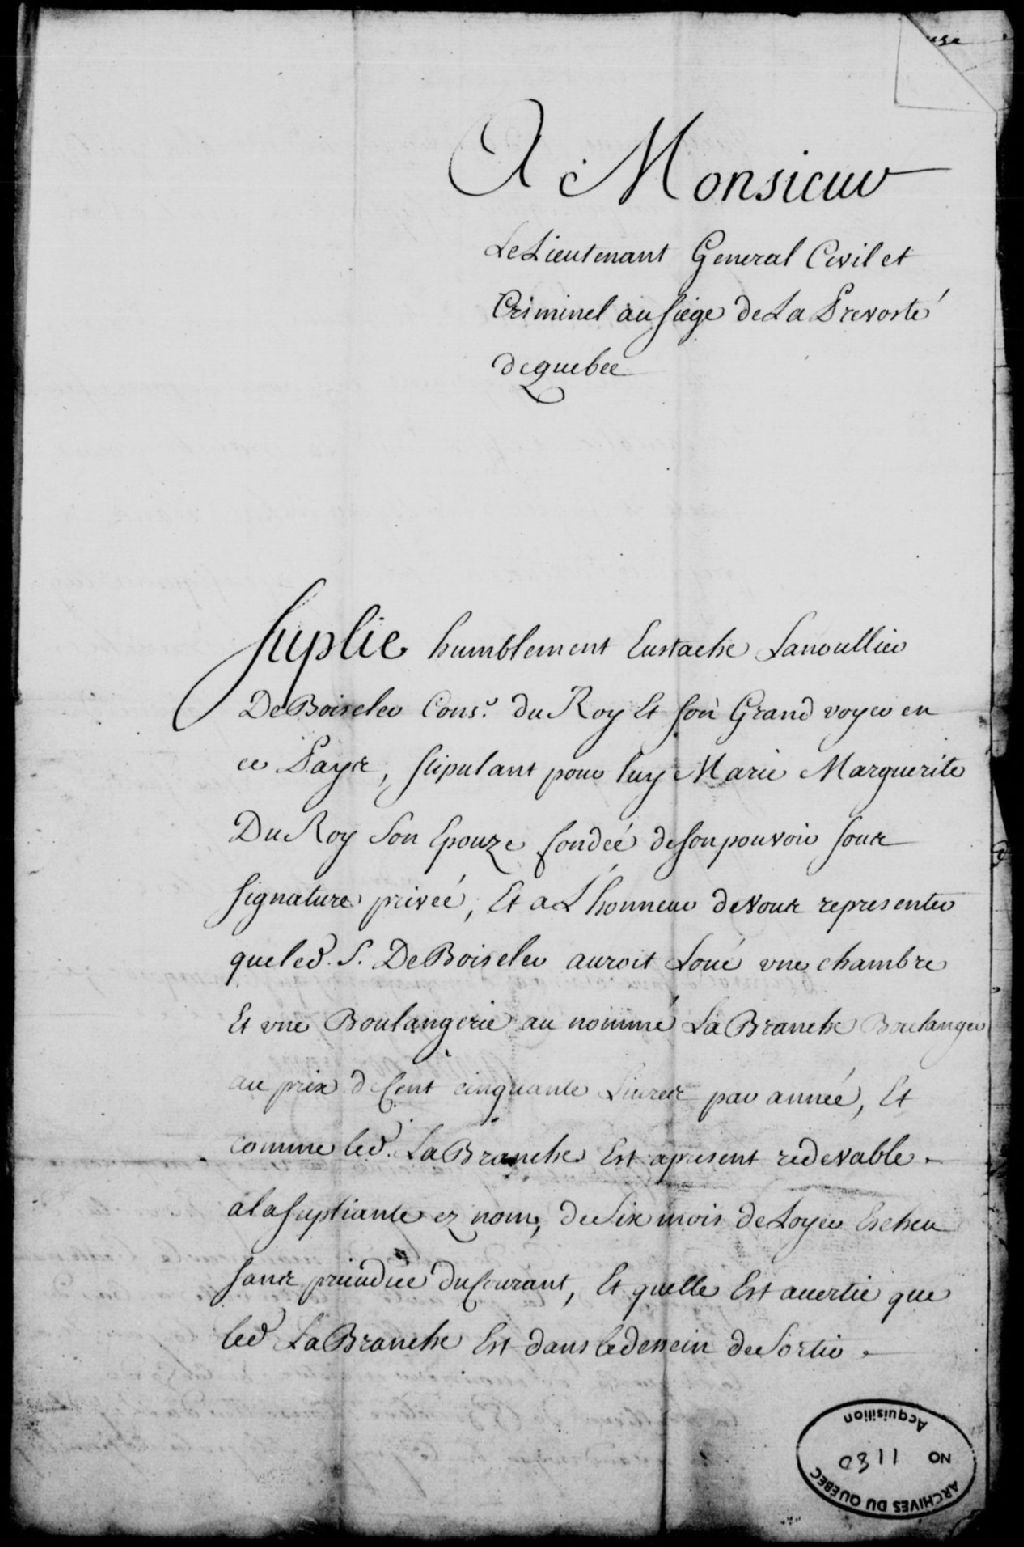 A Monsieur
Le Lieutenant General Civil et
Criminel au siege de La Prevosté
de quebec
Suplie humblement Eustache Lanoullier
De Boiscler Cons.r du Roy Et son Grand voyer en
ce Pays, stipulant pour luy Marie Marguerite
Du Roy Son Epouze fondeé de son pouvoir sous
signature priveé, Et a L'honneur de vous representer
que led. S. De Boiscler auroit Loüé une chambre
Et une Boulangerie au nommé La Branche Boulanger
au prix de Cent cinquante Livres par anneé, Et
comme led. La Branche Est apresent redevable
a la supliante ez nom, de six mois de Loyer Escheu
sans preiudice du Courant, Et quelle Est avertie que
led La Branche Est dans le dessein de Sortir
ARCHIVES DU QUEBEC
NO 1130
Acquisition